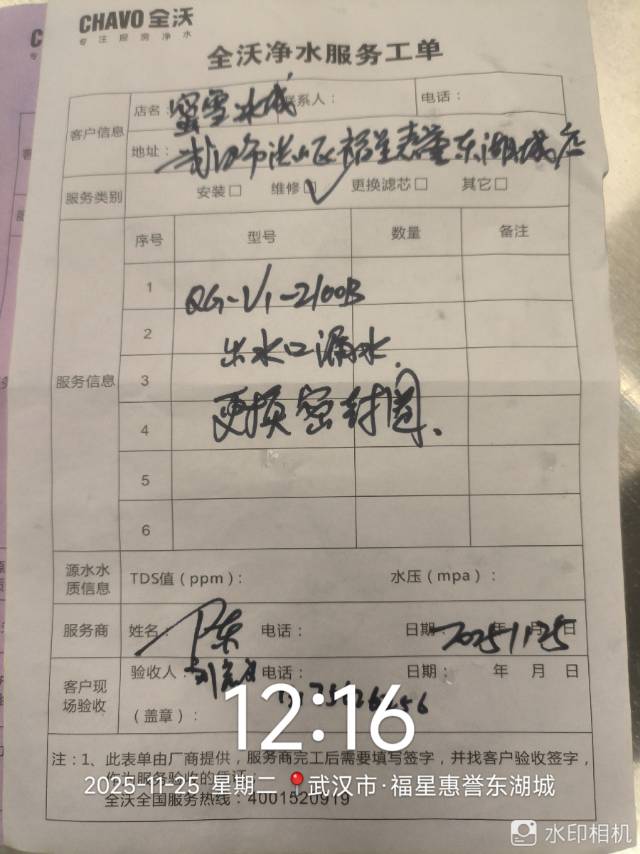 CHAVO 全沃
专注厨房净水
全沃净水服务工单
客户信息
店名：蜜雪冰城 联系人： 电话：
地址：武汉市洪山区福星惠誉东湖城店
服务类别 安装□ 维修☑ 更换滤芯□ 其它□
服务信息
序号 型号 数量 备注
1 QG-V1-2100B
2 出水口漏水.
3
4 更换密封圈.
5
6
源水水质信息 TDS值（ppm）： 水压（mpa）：
服务商 姓名： 电话： 日期：2025年11月25日
客户现场验收 验收人： 电话： 日期： 年 月 日
（盖章）：
12:16
注：1、此表单由厂商提供，服务商完工后需要填写签字，并找客户验收签字，
2025-11-25 星期二 武汉市·福星惠誉东湖城
全沃全国服务热线：4001520919
水印相机